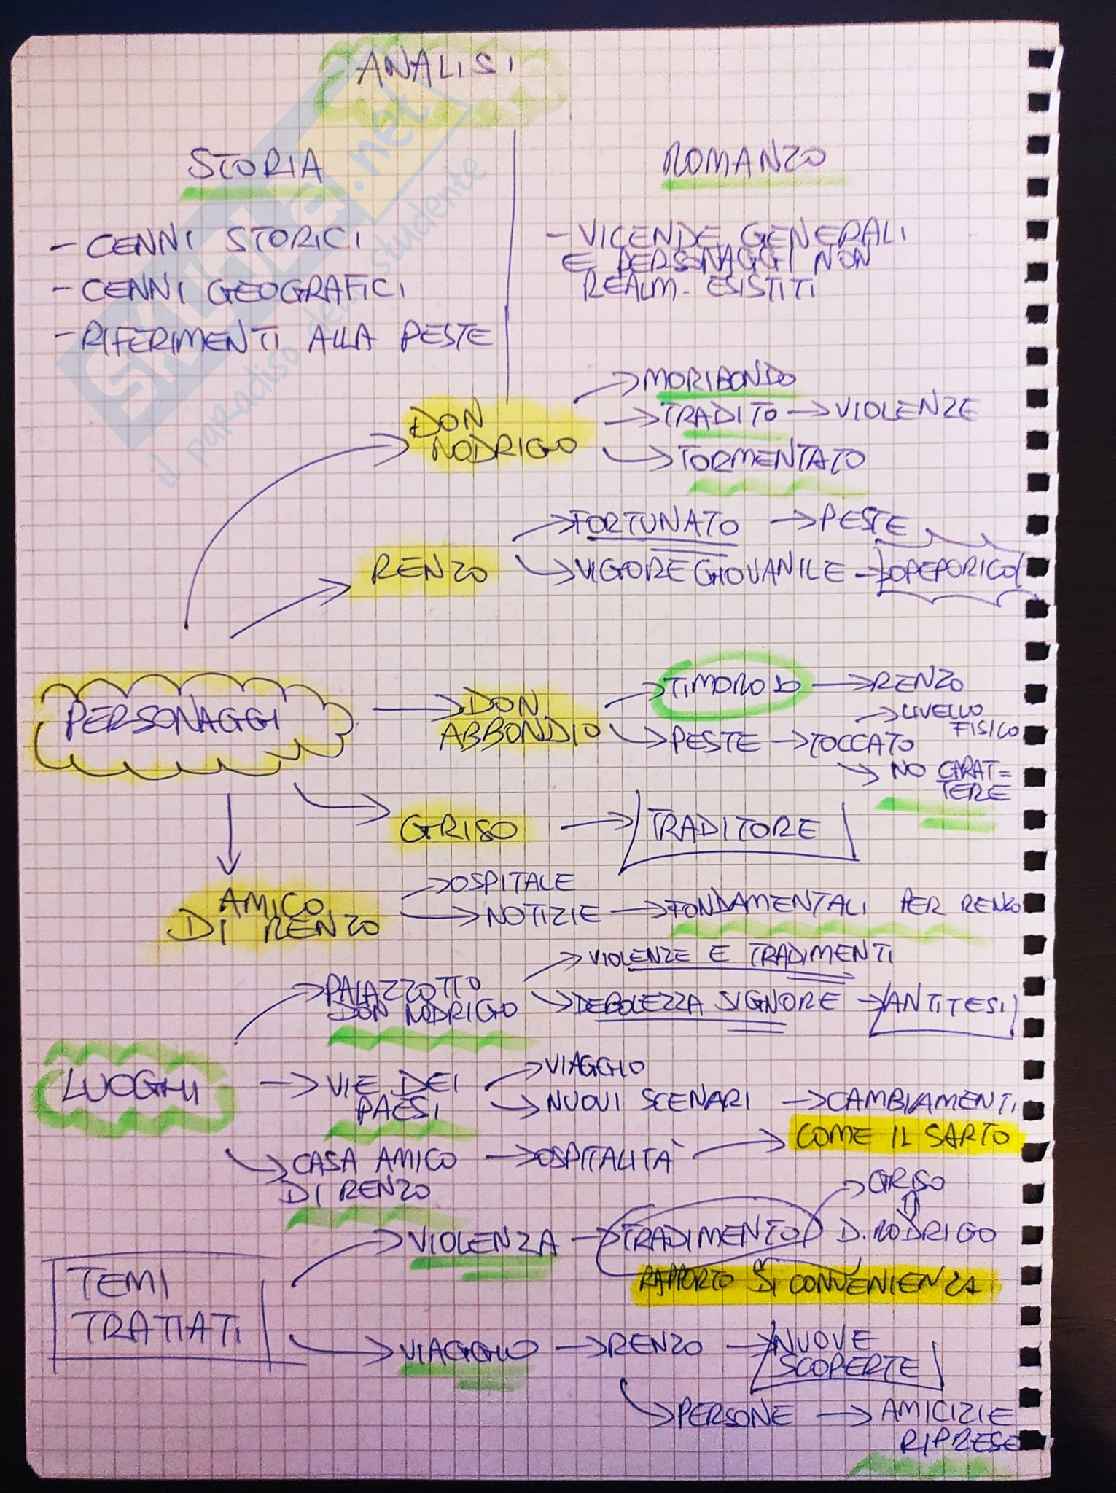 ANALISI
STORIA
- CENNI STORICI
- CENNI GEOGRAFICI
- RIFERIMENTI ALLA PESTE
ROMANZO
- VICENDE GENERALI
E PERSONAGGI NON
REALM. ESISTITI
PERSONAGGI
DON
RODRIGO
→ MORIBONDO
→ TRADITO → VIOLENZE
→ TORMENTATO
RENZO
→ FORTUNATO → PESTE
→ VIGORE GIOVANILE →
DON
ABBONDIO
→ TIMOROSO → RENZO
→ PESTE → TOCCATO
→ LIVELLO
FISICO
→ NO CARAT=
TERE
GRISO → TRADITORE
AMICO
DI RENZO
→ OSPITALE
→ NOTIZIE → FONDAMENTALI PER RENZO
LUOGHI
→ PALAZZOTTO
DON RODRIGO
→ VIOLENZE E TRADIMENTI
→ DEBOLEZZA SIGNORE → ANTITESI
→ VIE DEI
PAESI
→ VIAGGIO
→ NUOVI SCENARI → CAMBIAMENTI
→ CASA AMICO
DI RENZO
→ OSPITALITÀ → COME IL SARTO
TEMI
TRATTATI
→ VIOLENZA → TRADIMENTO
→ GRISO
D. RODRIGO
RAPPORTO DI CONVENIENZA
→ VIAGGIO → RENZO → NUOVE
SCOPERTE
→ PERSONE → AMICIZIE
RIPRESE
SKUOLA.net
il paradiso dello studente